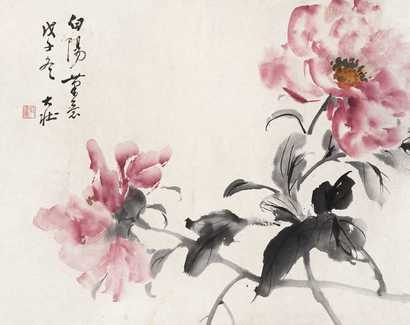 白陽筆意
戊子冬
大壯